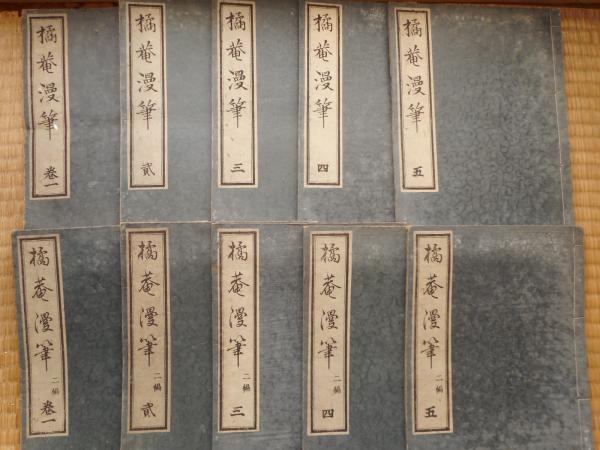 橘菴漫筆 巻一
橘菴漫筆 貳
橘菴漫筆 三
橘菴漫筆 四
橘菴漫筆 五
橘菴漫筆 二編 巻一
橘菴漫筆 二編 貳
橘菴漫筆 二編 三
橘菴漫筆 二編 四
橘菴漫筆 二編 五